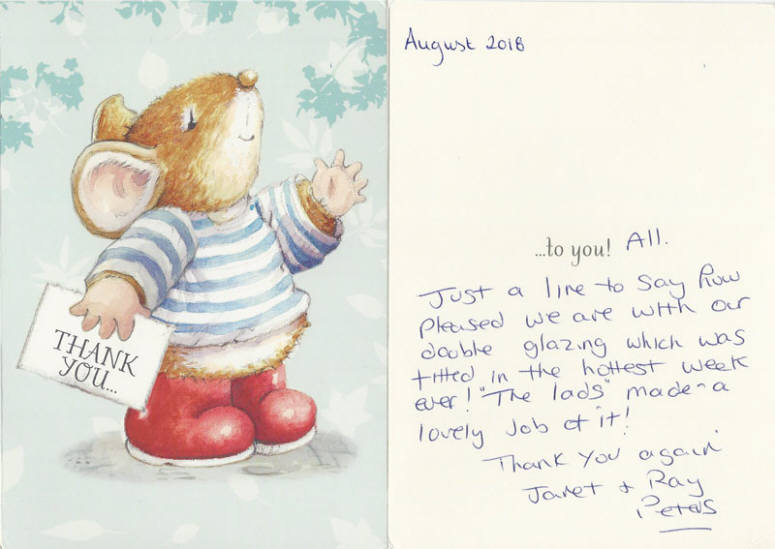 THANK
YOU...
August 2018
...to you! All.
Just a line to say how
pleased we are with our
double glazing which was
fitted in the hottest week
ever! "The lads" made a
lovely job of it!
Thank you again
Janet + Ray
Peters